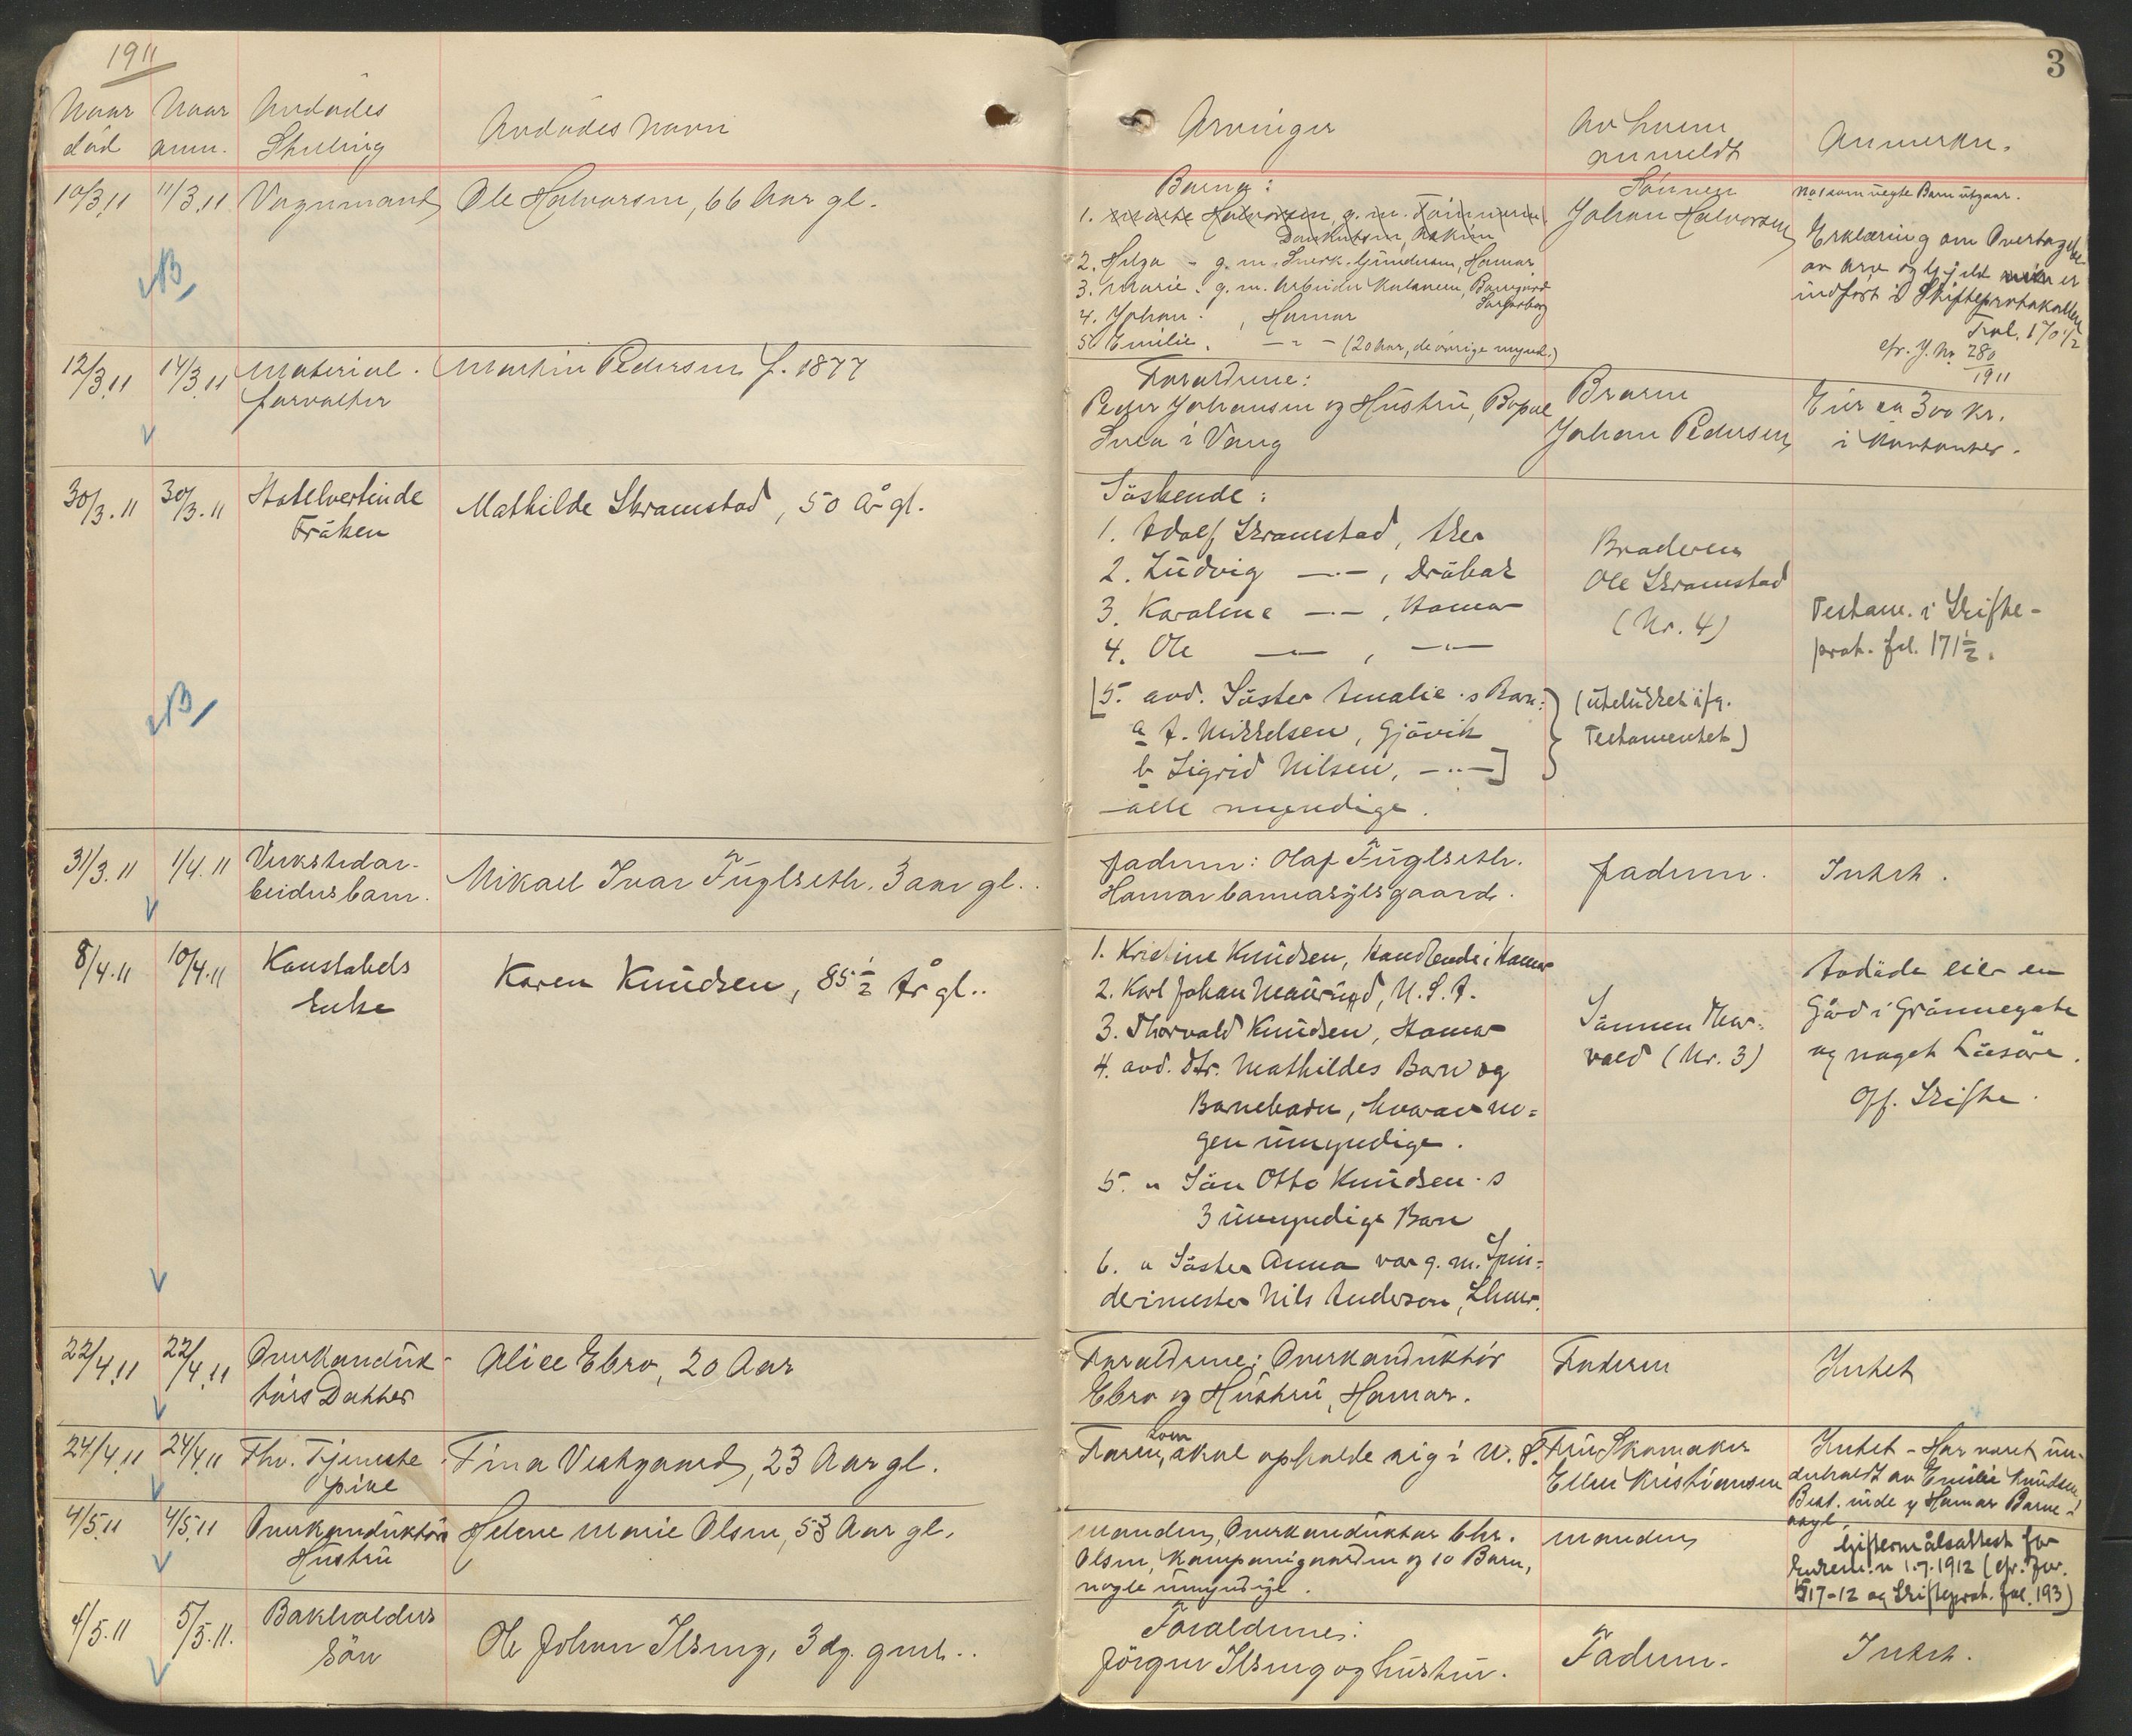 1911
3
Naar død
Naar anm.
Avdødes Stilling
Avdødes Navn
Arvinger
Av hvem anmeldt
Anmerkn.
10/3.11 11/3.11 Vognmand Ole Halvorsen, 66 Aar gl.
Barn:
1. Marthe Halvorsen, g. m. Tømmerm.
Askim
2. Helga - g. m. Snerk. Gundersen, Hamar
3. Marie - g. m. Arbeider
Sarpsborg
4. Johan - , Hamar
5. Emilie, - " - (20 Aar, de øvrige mynd.)
Sønnen
Johan Halvorsen
No 1 som uegte Barn utgaar.
Erklæring om Overtagelse
av Arv og Gjeld er
indført i Skifteprotokollen
Fol. 170 1/2
cfr. J. No. 280
1911
12/3.11 14/3.11 Material-
forvalter
Martin Pedersen f. 1877
Forældrene:
Peder Johansen og Hustru, Bopæl
i Vang
Broren
Johan Pedersen
Eier ca 300 Kr.
i Kontanter.
30/3.11 30/3.11 Hotelvertinde
Frøken
Mathilde Skramstad, 50 År gl.
Søskende:
1. Adolf Skramstad, Aker
2. Ludvig -"-, Drøbak
3. Karoline -"-, Hamar
4. Ole -"-, -"-
[5. avd. Søster Amalie's Barn:
a A. Mikkelsen, Gjøvik
b Sigrid Nilsen, -"-]
alle myndige.
(utelukket ifg.
Testamentet)
Broderen
Ole Skramstad
(Nr. 4)
Testam. i Skifte-
prot. fol. 171 1/2.
31/3.11 1/4.11 Verkstedar-
beidersbarn.
Mikael Ivar Fuglseth. 3 aar gl..
Faderen: Olaf Fuglseth.
Hamar barneasylsgaard.
Faderen.
Intet.
8/4.11 10/4.11 Konstabels
Enke
Karen Knudsen, 85 1/2 År gl..
1. Kristine Knudsen, Handlende i Hamar
2. Karl Johan Maurud, U.S.A.
3. Thorvald Knudsen, Hamar
4. avd. Dtr. Mathildes Barn og
Barnebarn, hvorav no=
gen umyndige.
5. " Søn Otto Knudsen's
3 umyndige Barn
6. " Søster Anna var g. m. Spin=
derimester Nils Anderson,
Sønnen Thor-
vald (Nr. 3)
Avdøde eier en
Gård i Grønnegate
og noget Løsøre.
Off. Skifte.
22/4.11 22/4.11 Overkonduk-
tørs Datter
Alice Ebro, 20 Aar
Forældrene: Overkonduktør
Ebro og Hustru, Hamar.
Faderen
Intet
24/4.11 24/4.11 Fhv. Tjeneste-
pike
Tina Vestgaard, 23 Aar gl.
Faren, som skal opholde sig i U. S.
Fru Skomaker
Ellen Kristiansen
Intet - Har været un-
derholdt av Emilie Knudsen
Best. inde ved Hamar Barne-
asyl
4/5.11 4/5.11 Overkonduktørs
Hustru
Helene Marie Olsen, 53 Aar gl.
Manden, Overkonduktør Chr.
Olsen, Kompanigaarden og 10 Barn,
nogle umyndige.
Manden
Giftermålsattest for
Enkem. 1.7.1912 (cfr. Jnr.
517-12 og Skifteprot. fol. 193)
4/5.11 5/5.11. Bokholders
Søn
Ole Johan Ilseng, 3 dg. gml..
Forældrene:
Jørgen Ilseng og hustru.
Faderen.
Intet.